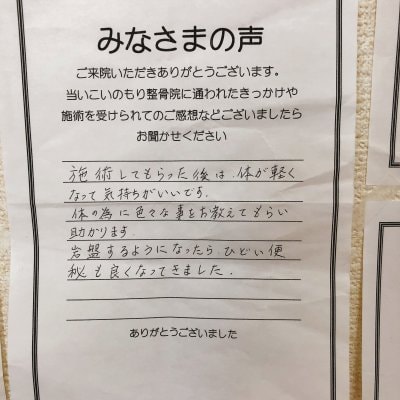 みなさまの声
ご来院いただきありがとうございます。
当いこいのもり整骨院に通われたきっかけや
施術を受けられてのご感想などございましたら
お聞かせください
施術してもらった後は、体が軽く
なって気持ちがいいです。
体の為に色々な事をお教えてもらい
助かります。
岩盤するようになったら、ひどい便
秘も良くなってきました。
ありがとうございました